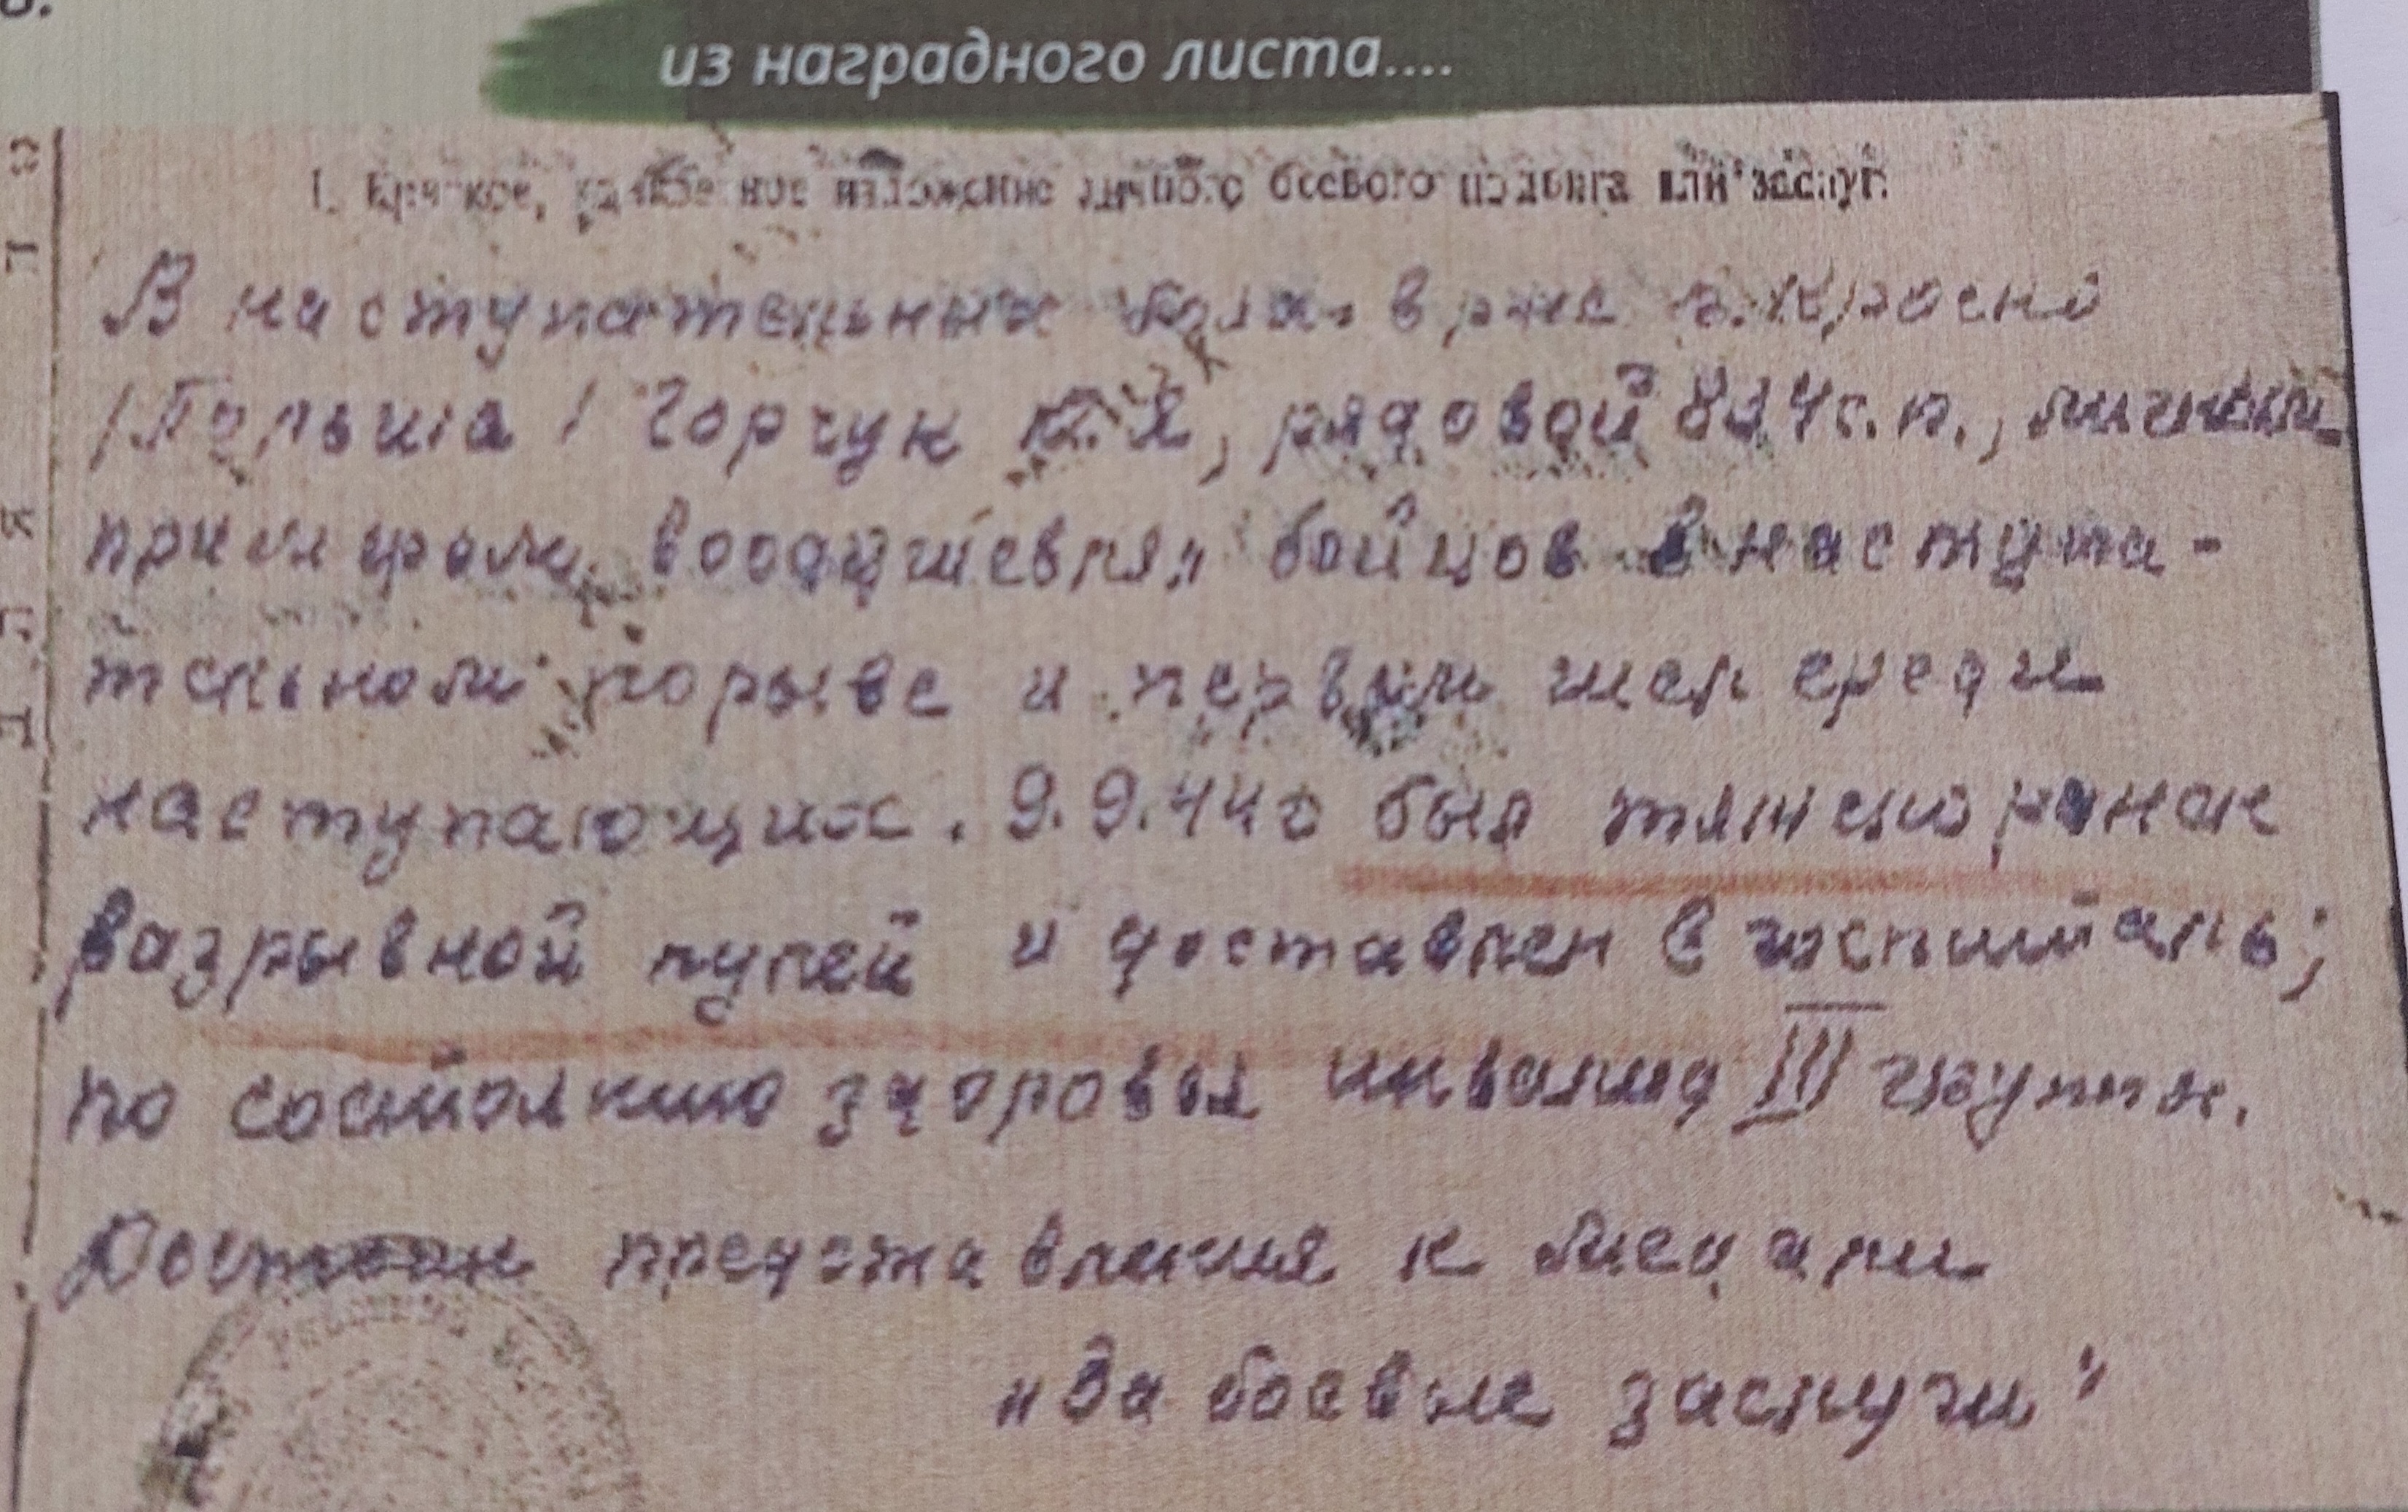 из наградного листа....
I. Краткое, конкретное изложение личного боевого подвига или заслуг:
В наступательных боях в р-не г. Кросно
/Польша/ Горчук К. Я, рядовой с.п., личным
примером воодушевлял бойцов в наступа-
тельном порыве и первым шел среди
наступающих. 9.9.44г был тяжело ранен
разрывной пулей и доставлен в госпиталь;
по состоянию здоровья инвалид III группы.
Достоин представления к медали
"За боевые заслуги"